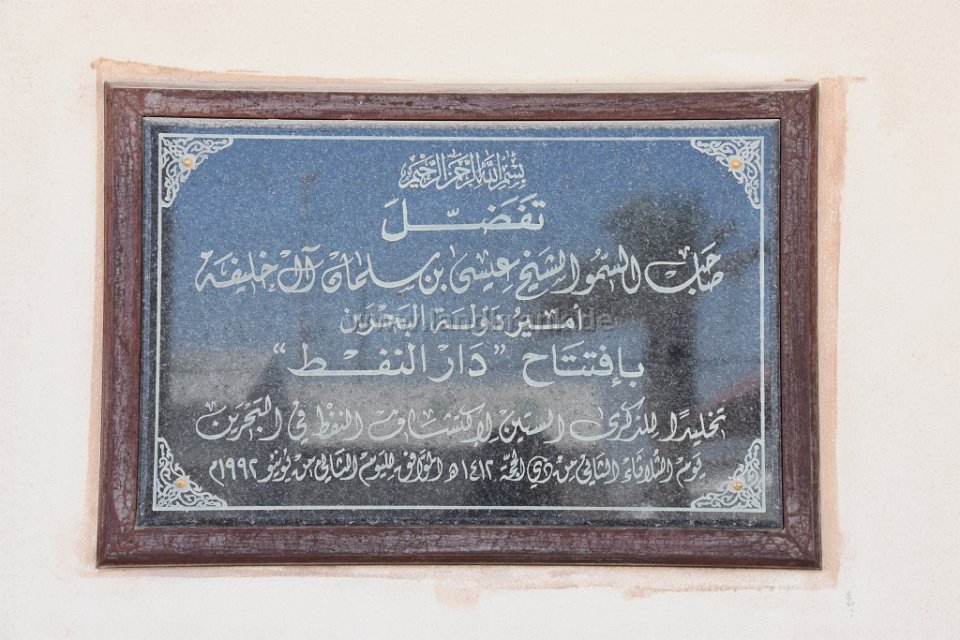 بسم الله الرحمن الرحيم
تفضل
صاحب السمو الشيخ عيسى بن سلمان آل خليفة
أمير دولة البحرين
بإفتتاح "دار النفط"
تخليدًا للذكرى الستين لإكتشاف النفط في البحرين
يوم الثلاثاء الثاني من ذي الحجة ١٤١٢ ه الموافق لليوم الثاني من يونيو ١٩٩٢م